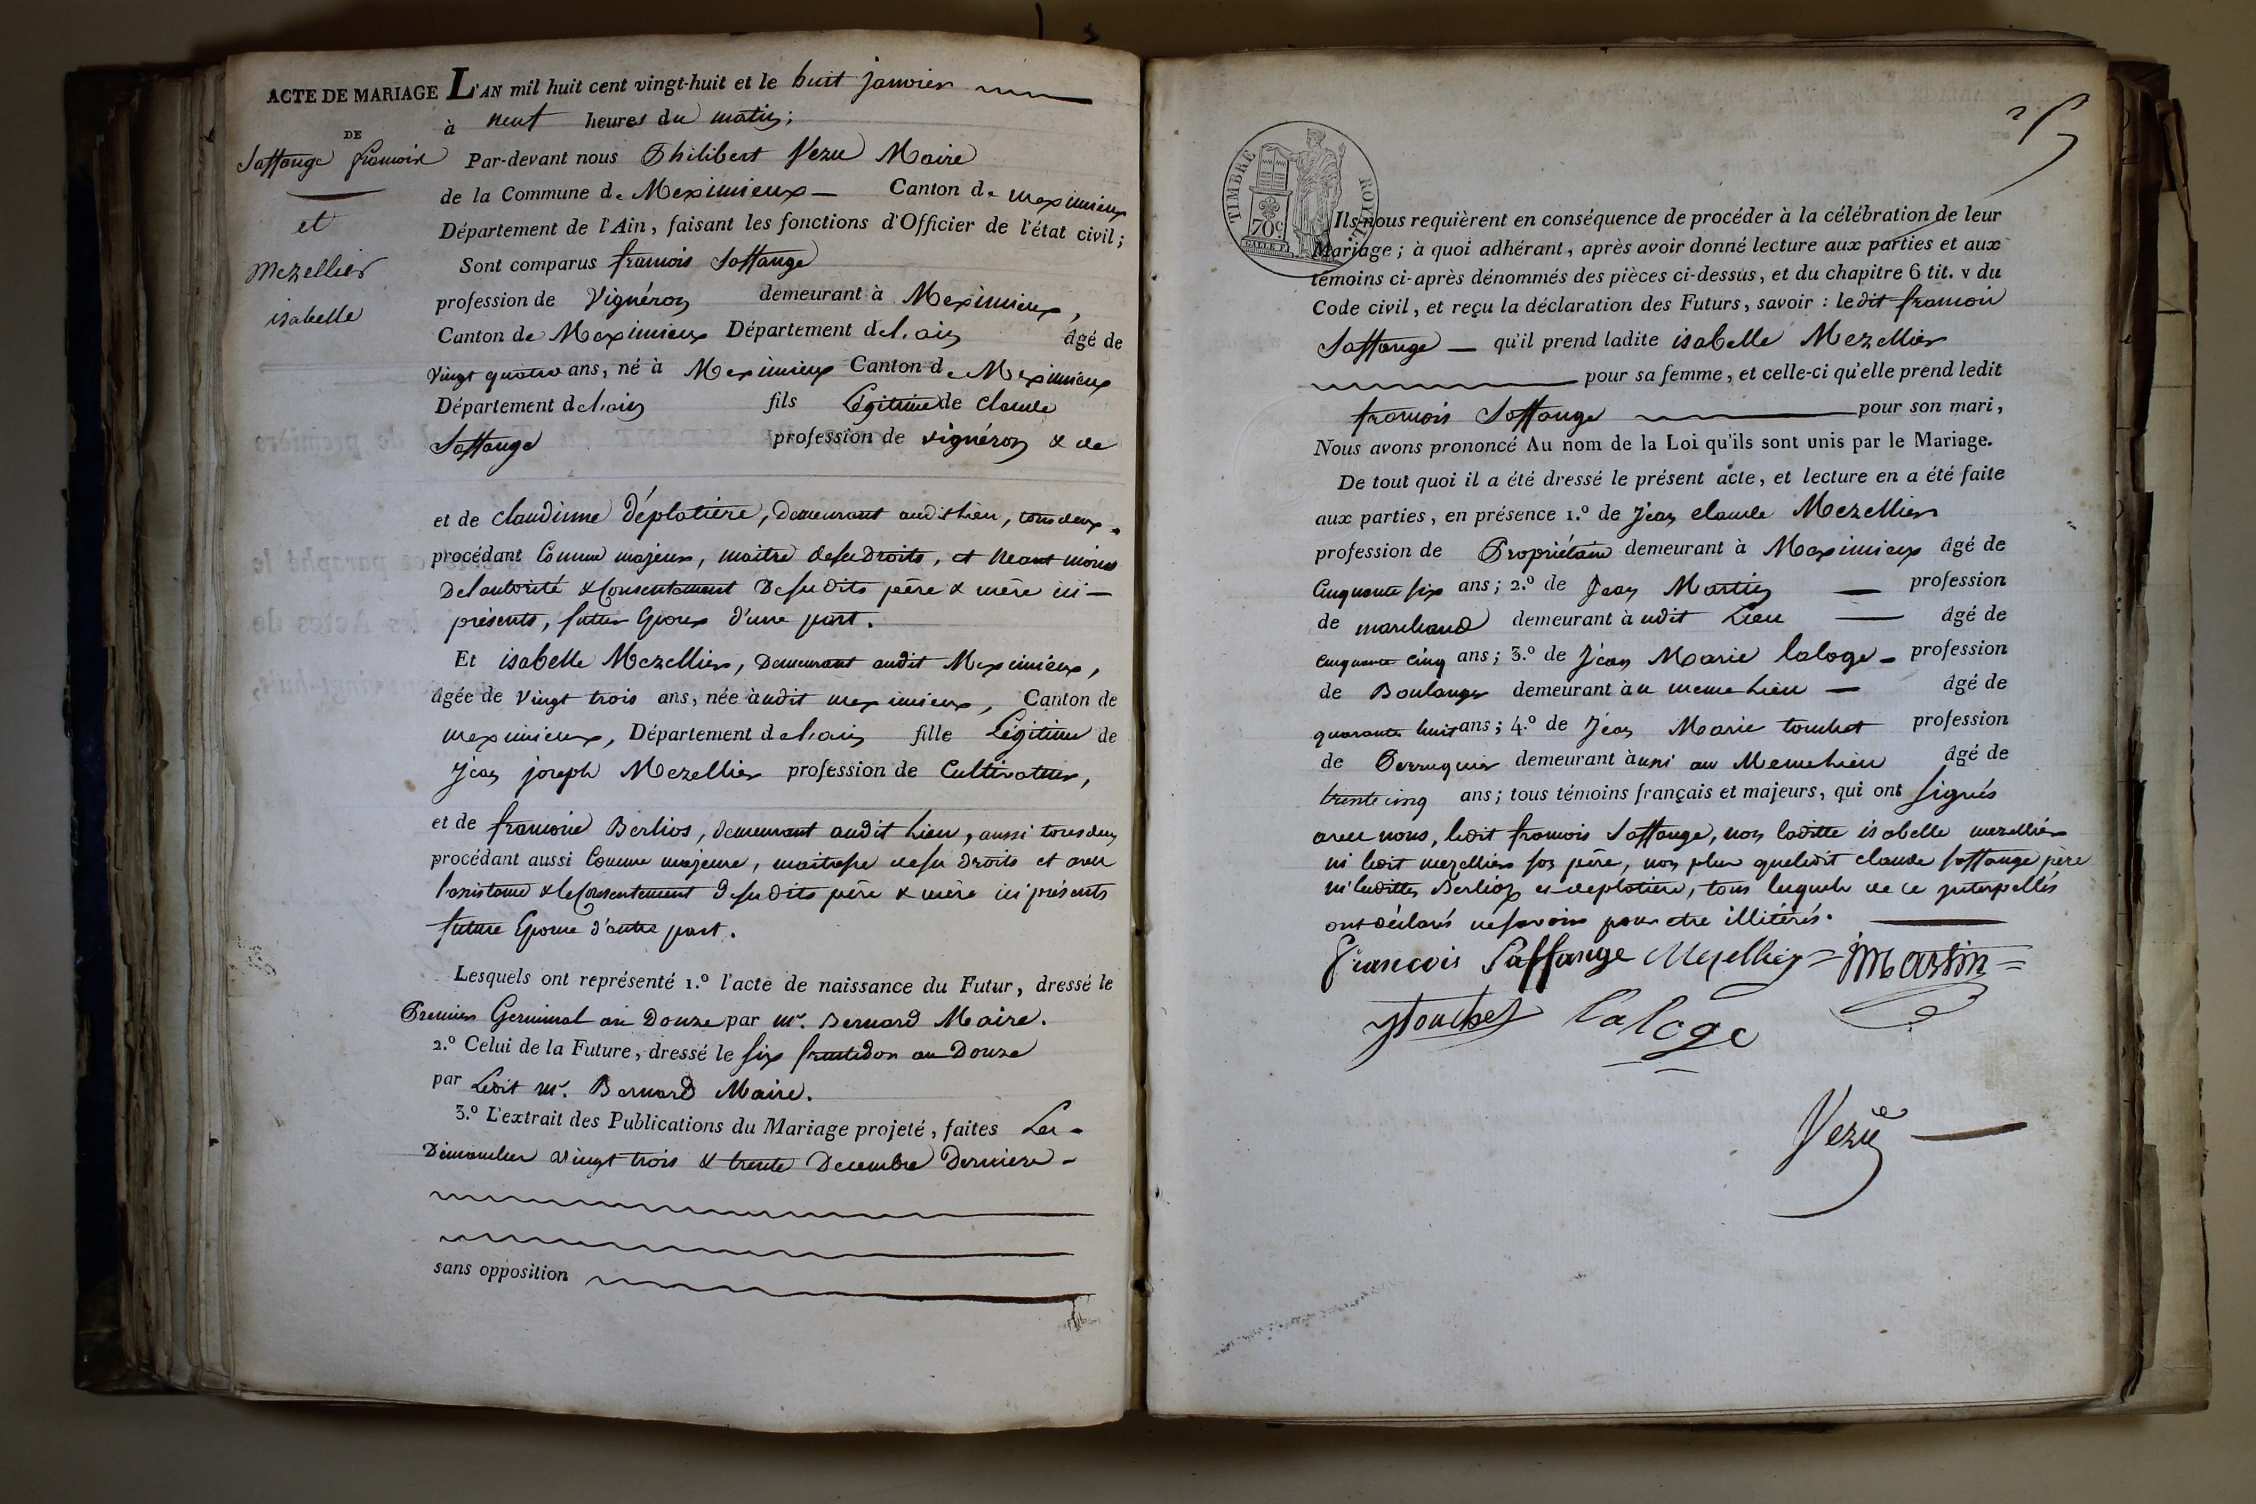 ACTE DE MARIAGE
DE
Saffange françois
et
Mezellier
isabelle
L'AN mil huit cent vingt-huit et le huit janvier
à neuf heures du matin;
Par-devant nous Philibert Vezu Maire
de la Commune de Meximieux — Canton de meximieux
Département de l'Ain, faisant les fonctions d'Officier de l'état civil;
Sont comparus françois Saffange
profession de Vignéron demeurant à Meximieux,
Canton de Meximieux Département de l'ain âgé de
vingt quatre ans, né à Meximieux Canton de Meximieux
Département de l'ain fils Légitime de claude
Saffange profession de vignéron & de
et de claudinne déplatière, demeurant audit lieu, tous deux
procédant Comme majeur, maitre de ses Droits, et neant moins
De l'autorité & Consentement De ses dits père & mère ici —
présents, futur Epoux d'une part.
Et isabelle Mezellier, Demeurant audit Meximieux,
âgée de vingt trois ans, née audit meximieux, Canton de
meximieux, Département de l'ain fille Légitime de
Jean joseph Mezellier profession de Cultivateur,
et de françoise Berlios, demeurant audit lieu, aussi tous deux
procédant aussi Comme majeure, maitresse de ses droits et avec
l'assistance & le Consentement de ses dits père & mère ici présents
future Epouse d'autre part.
Lesquels ont représenté 1.º l'acte de naissance du Futur, dressé le
Premier Germinal an Douze par mr. Bernard Maire.
2.º Celui de la Future, dressé le six fructidor an Douze
par Ledit mr. Bernard Maire.
3.º L'extrait des Publications du Mariage projeté, faites Les
Dimanches vingt trois & trente Decembre Derniere
sans opposition
TIMBRE ROYAL
70 c.
Ils nous requièrent en conséquence de procéder à la célébration de leur
Mariage; à quoi adhérant, après avoir donné lecture aux parties et aux
témoins ci-après dénommés des pièces ci-dessus, et du chapitre 6 tit. v du
Code civil, et reçu la déclaration des Futurs, savoir : ledit françois
Saffange — qu'il prend ladite isabelle Mezellier
pour sa femme, et celle-ci qu'elle prend ledit
françois Saffange pour son mari,
Nous avons prononcé Au nom de la Loi qu'ils sont unis par le Mariage.
De tout quoi il a été dressé le présent acte, et lecture en a été faite
aux parties, en présence 1.º de Jean claude Mezellier
profession de Propriétaire demeurant à Meximieux âgé de
Cinquante six ans; 2.º de Jean Martin — profession
de marchand demeurant audit Lieu — âgé de
cinquante cinq ans; 3.º de Jean Marie laloge — profession
de Boulanger demeurant au meme Lieu — âgé de
quarante huit ans; 4.º de Jean Marie touchet profession
de Perruquier demeurant aussi au Meme Lieu âgé de
trente cinq ans; tous témoins français et majeurs, qui ont signés
avec nous, ledit françois Saffange, non laditte isabelle mezellier
ni ledit mezellier son père, non plus que ledit claude saffange père
ni lesdittes Berlioz et deplatiere, tous lesquels de ce interpellés
ont déclarés ne savoir pour etre illitérés.
François Saffange Mezellier Martin
JTouchet laloge
Vezu